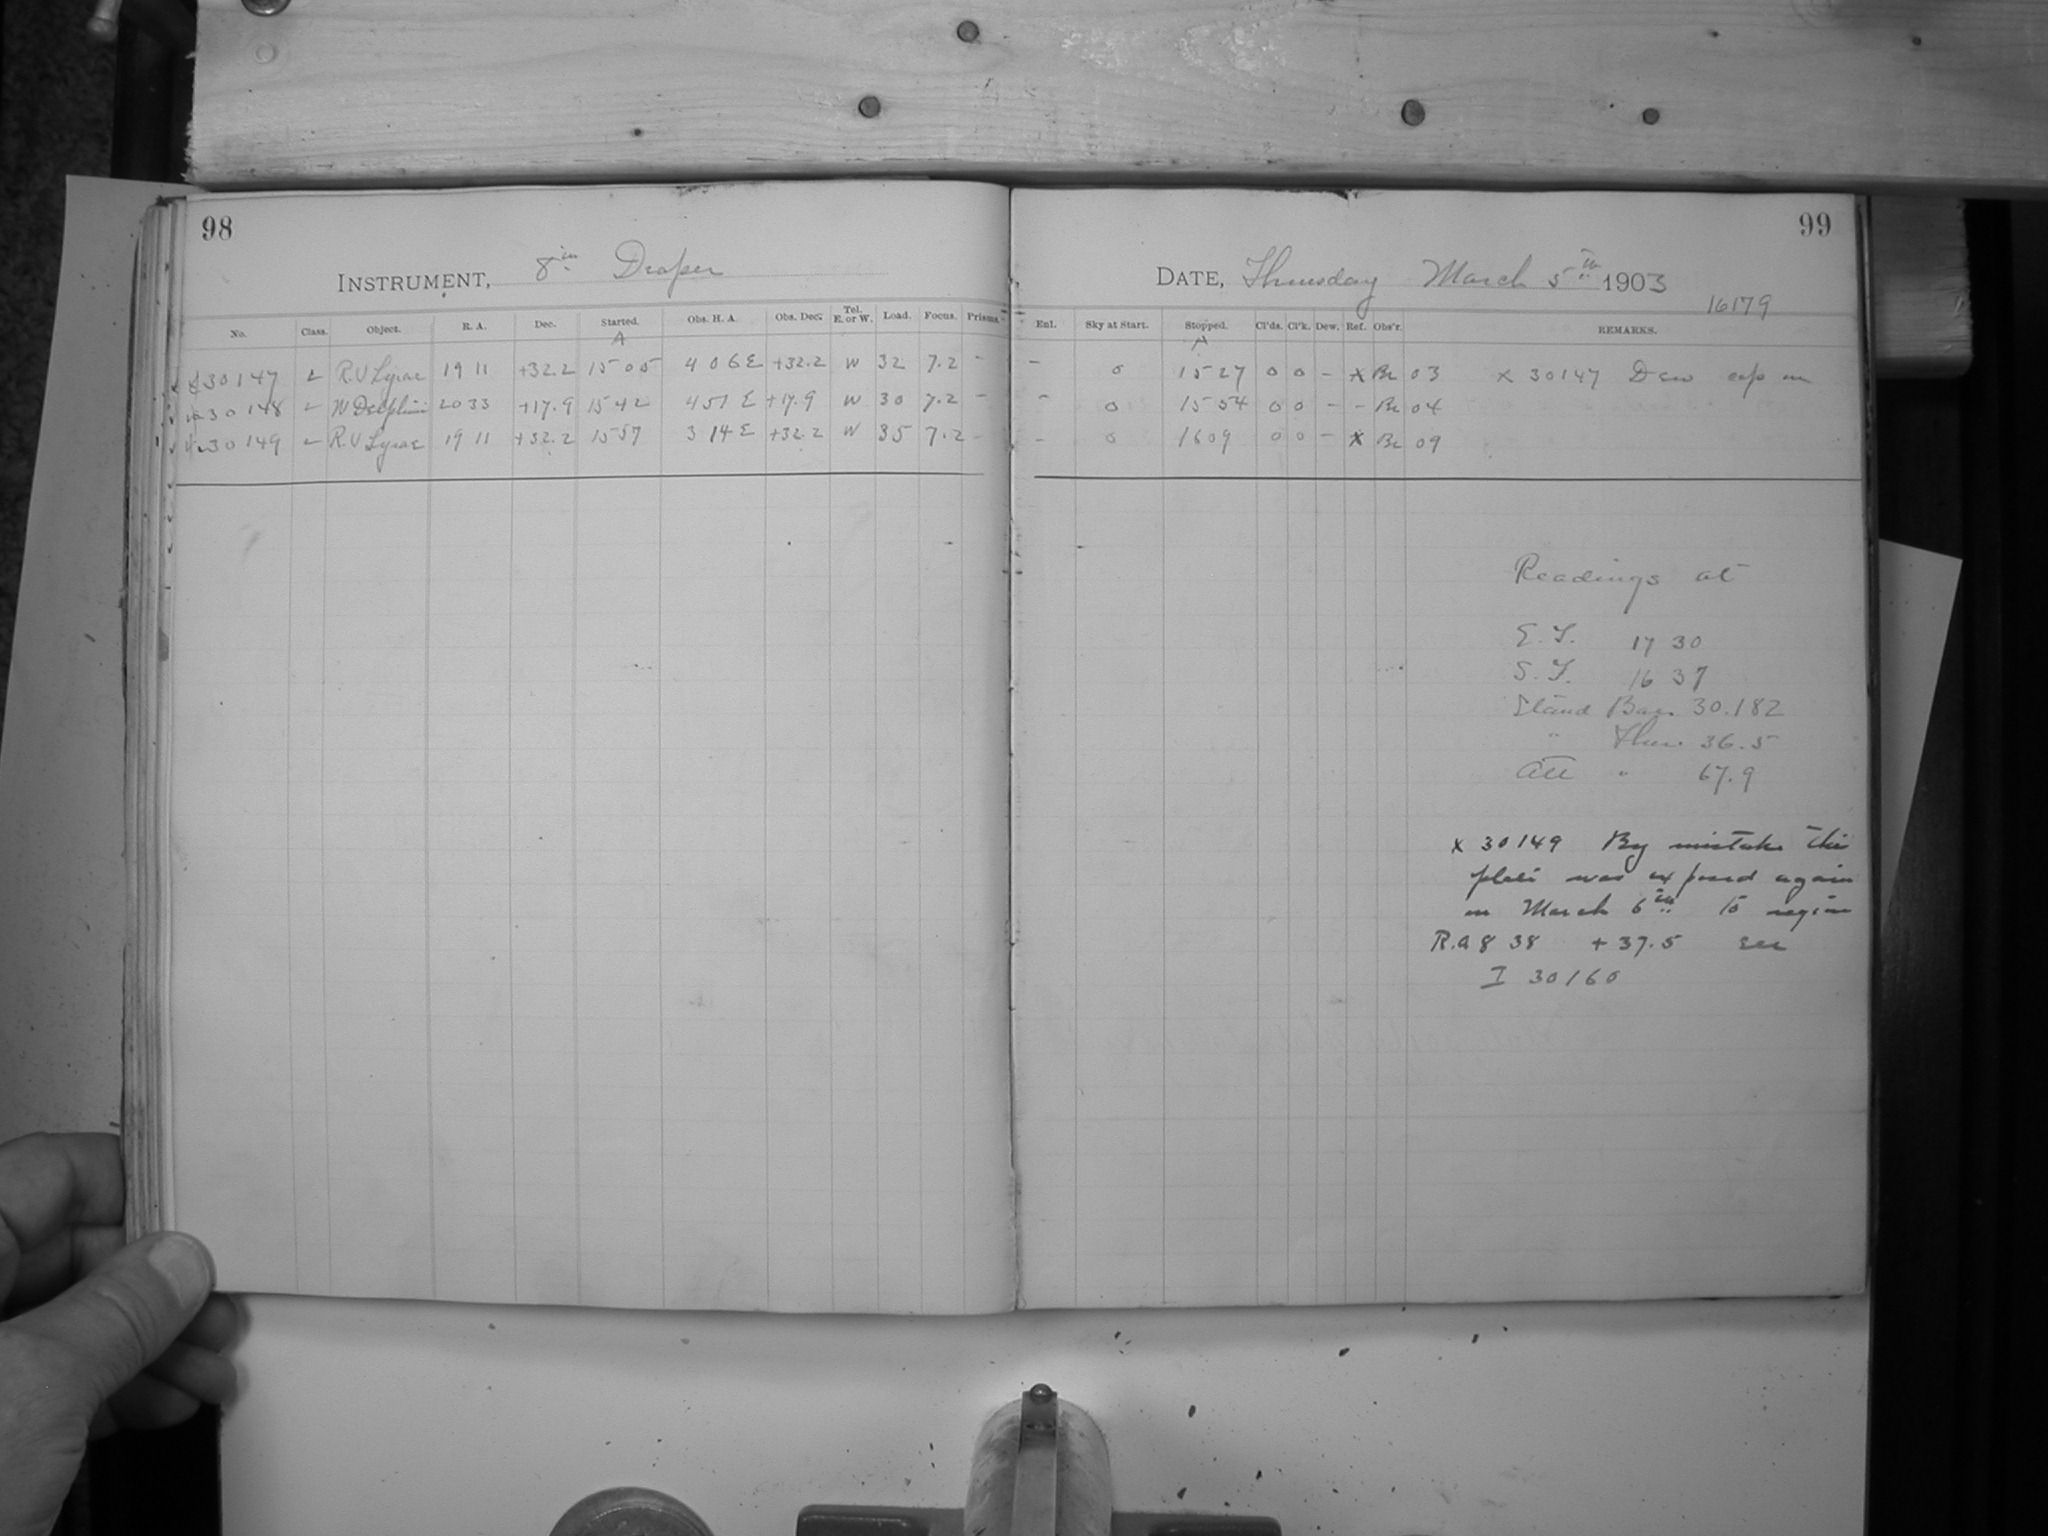 98
INSTRUMENT, 8 in Draper
No. Class. Object. R. A. Dec. Started. Obs. H. A. Obs. Dec. Tel. E. or W. Load. Focus. Prisms.
A
x 30147 L R.V Lyrae 19 11 +32.2 15 05 4 06 E +32.2 W 32 7.2 -
30148 L W Delphini 20 33 +17.9 15 42 4 51 E +17.9 W 30 7.2 -
30149 L R.V Lyrae 19 11 +32.2 15 57 3 14 E +32.2 W 35 7.2 -
99
DATE, Thursday March 5th 1903
16179
Enl. Sky at Start. Stopped. Cl'ds. Cl'k. Dew. Ref. Obs'r. REMARKS.
A
- 0 15 27 0 0 - x Br 03 x 30147 Dew cap on
- 0 15 54 0 0 - - Br 04
- 0 16 09 0 0 - x Br 09
Readings at
E. T. 17 30
S. T. 16 37
Stand Bar. 30.182
" Ther. 36.5
Att " 67.9
x 30149 By mistake this
plate was exposed again
on March 6th to region
R.a 8 38 + 37.5 see
I 30160